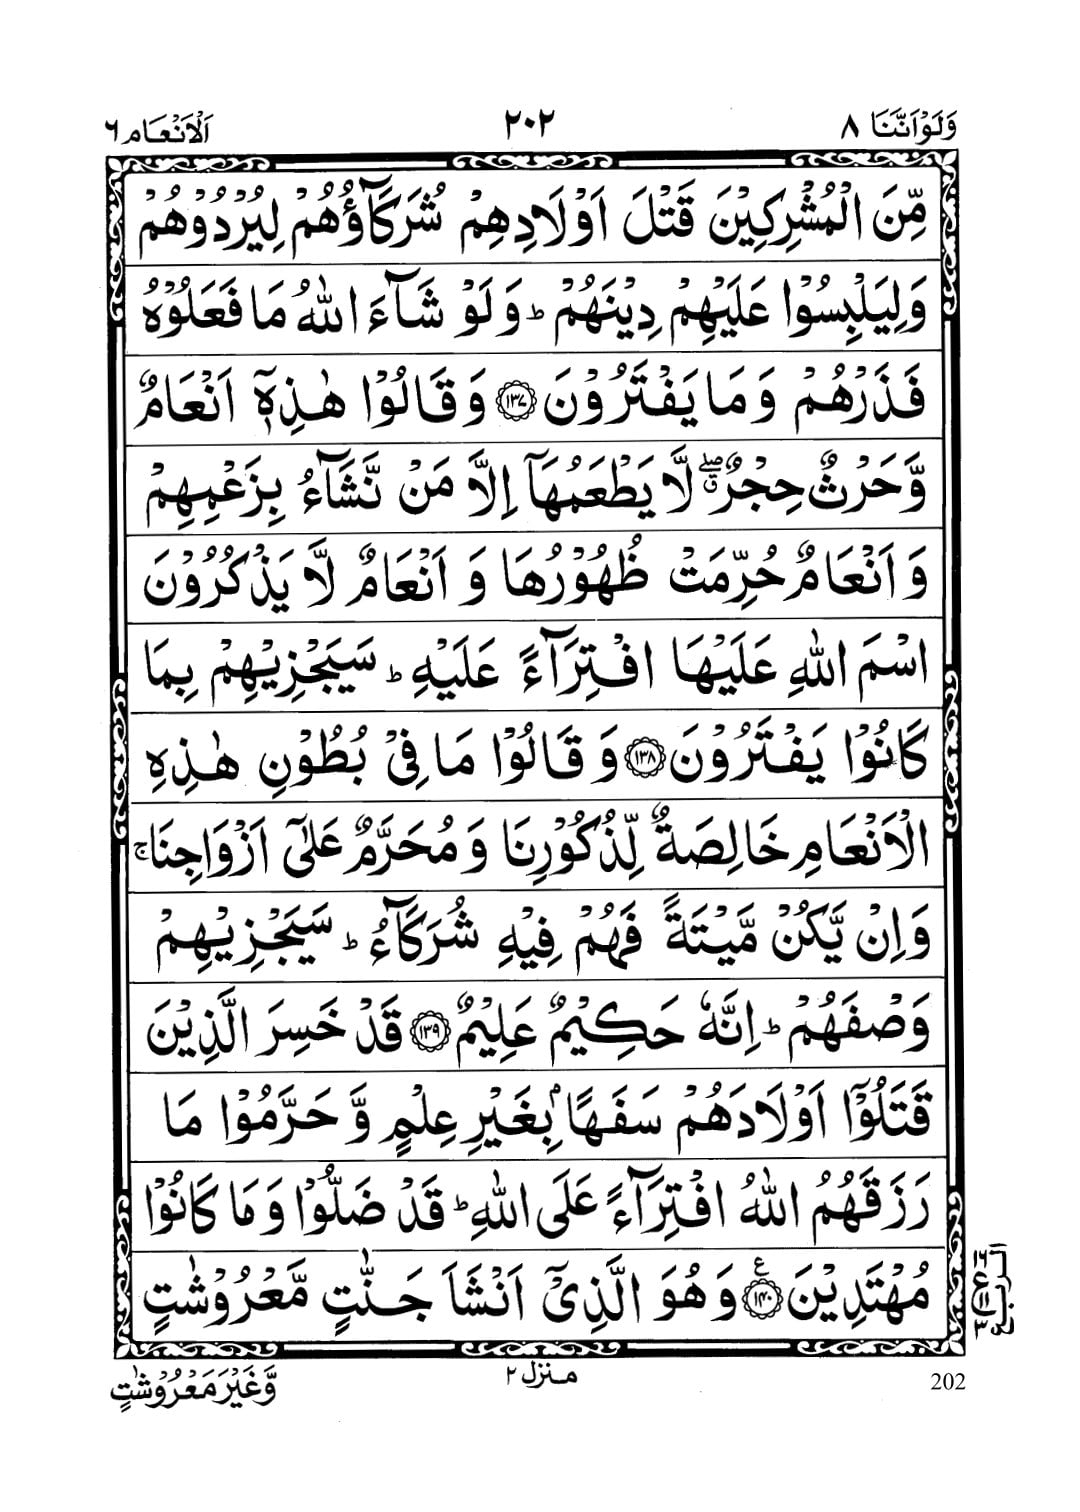 وَلَوْ اَنَّنَا ٨
٢٠٢
اَلْاَنْعَام ٦
مِّنَ الْمُشْرِكِيْنَ قَتْلَ اَوْلَادِهِمْ شُرَكَآؤُهُمْ لِيُرْدُوْهُمْ
وَلِيَلْبِسُوْا عَلَيْهِمْ دِيْنَهُمْ ؕ وَلَوْ شَآءَ اللّٰهُ مَا فَعَلُوْهُ
فَذَرْهُمْ وَمَا يَفْتَرُوْنَ ﴿١٣٧﴾ وَقَالُوْا هٰذِهٖٓ اَنْعَامٌ
وَّحَرْثٌ حِجْرٌ ۖق لَّا يَطْعَمُهَآ اِلَّا مَنْ نَّشَآءُ بِزَعْمِهِمْ
وَ اَنْعَامٌ حُرِّمَتْ ظُهُوْرُهَا وَ اَنْعَامٌ لَّا يَذْكُرُوْنَ
اسْمَ اللّٰهِ عَلَيْهَا افْتِرَآءً عَلَيْهِ ؕ سَيَجْزِيْهِمْ بِمَا
كَانُوْا يَفْتَرُوْنَ ﴿١٣٨﴾ وَقَالُوْا مَا فِيْ بُطُوْنِ هٰذِهِ
الْاَنْعَامِ خَالِصَةٌ لِّذُكُوْرِنَا وَمُحَرَّمٌ عَلٰٓى اَزْوَاجِنَا ۚ
وَاِنْ يَّكُنْ مَّيْتَةً فَهُمْ فِيْهِ شُرَكَآءُ ؕ سَيَجْزِيْهِمْ
وَصْفَهُمْ ؕ اِنَّهٗ حَكِيْمٌ عَلِيْمٌ ﴿١٣٩﴾ قَدْ خَسِرَ الَّذِيْنَ
قَتَلُوْٓا اَوْلَادَهُمْ سَفَهًۢا بِغَيْرِ عِلْمٍ وَّحَرَّمُوْا مَا
رَزَقَهُمُ اللّٰهُ افْتِرَآءً عَلَى اللّٰهِ ؕ قَدْ ضَلُّوْا وَمَا كَانُوْا
مُهْتَدِيْنَ ﴿١٤٠﴾ ع وَهُوَ الَّذِيْٓ اَنْشَاَ جَنّٰتٍ مَّعْرُوْشٰتٍ
الربع
١٦
ع
١١
٣
وَّغَيْرَ مَعْرُوْشٰتٍ
منزل ٢
202